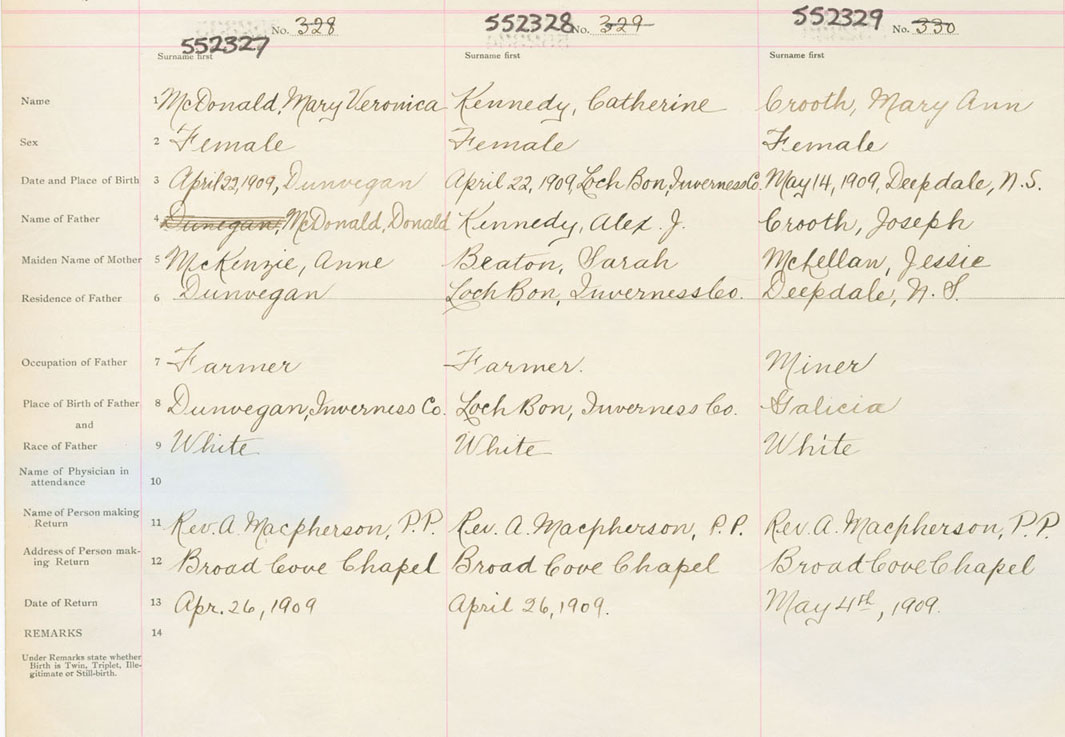 No. 328 552328 No. 329 552329 No. 330
552327
Surname first Surname first Surname first
Name 1 McDonald, Mary Veronica Kennedy, Catherine Crooth, Mary Ann
Sex 2 Female Female Female
Date and Place of Birth 3 April 22, 1909, Dunvegan April 22, 1909, Loch Bon, Inverness Co. May 14, 1909, Deepdale, N.S.
Name of Father 4 Dunegan, McDonald, Donald Kennedy, Alex. J. Crooth, Joseph
Maiden Name of Mother 5 McKenzie, Anne Beaton, Sarah McLellan, Jessie
Residence of Father 6 Dunvegan Loch Bon, Inverness Co. Deepdale, N.S.
Occupation of Father 7 Farmer Farmer. Miner
Place of Birth of Father 8 Dunvegan, Inverness Co. Loch Bon, Inverness Co. Galicia
and
Race of Father 9 White White White
Name of Physician in
attendance 10
Name of Person making
Return 11 Rev. A. Macpherson, P.P. Rev. A. Macpherson, P.P. Rev. A. Macpherson, P.P.
Address of Person mak-
ing Return 12 Broad Cove Chapel Broad Cove Chapel Broad Cove Chapel
Date of Return 13 Apr. 26, 1909 April 26, 1909. May 4th, 1909.
REMARKS 14
Under Remarks state whether
Birth is Twin, Triplet, Ille-
gitimate or Still-birth.